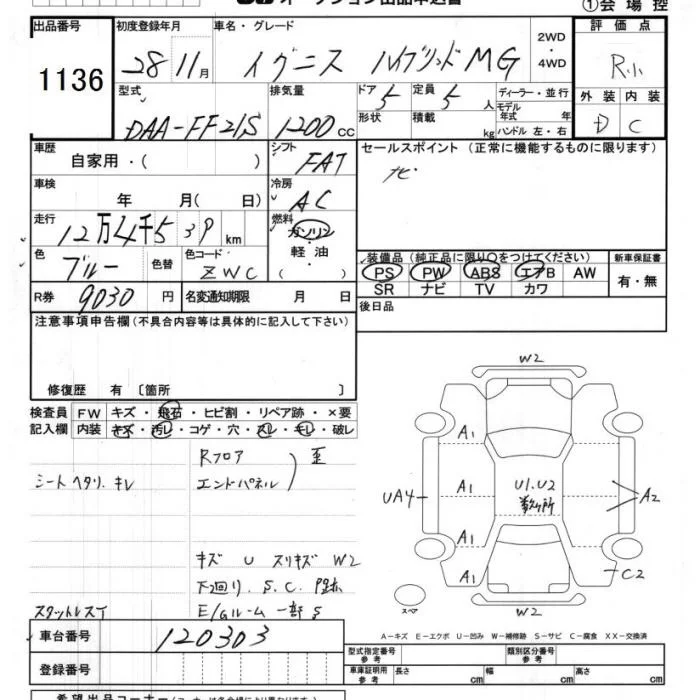 オークション出品申込書
①会場控
出品番号 初度登録年月 車名・グレード 評価点
1136 28 11月 イグニス ハイブリッドMG 2WD・4WD R小
型式 排気量 ドア 5 定員 5人 ディーラー・並行 外装 内装
DAA-FF21S 1200cc 形状 積載 kg モデル年式 年 D C
ハンドル 左・右
車歴 シフト セールスポイント (正常に機能するものに限ります)
自家用・( ) FAT ナビ
車検 冷房
年 月( 日) AC
走行 燃料
12万4千5 39 km ガソリン
軽油
・( )
色 色替 色コード 装備品 (純正品に限り○をつけてください) 新車保証書
ブルー ZWC PS PW ABS エアB AW 有・無
SR ナビ TV カワ
R券 9030円 名変通知期限 月 日 後日品
注意事項申告欄(不具合内容等は具体的に記入して下さい)
修復歴 有 〔箇所 〕
検査員 FW キズ・飛石・ヒビ割・リペア跡・×要
記入欄 内装 キズ・汚レ・コゲ・穴・スレ・キレ・破レ
Rフロア
エンドパネル 歪
シートヘタリ.キレ
キズ U スリキズ W2
下回り.S.C.
スタットレスT E/Gルーム一部S
W2
A1
UA4 A1 U1.U2 A2
数ヶ所
A1
A1 C2
スペア W2
A-キズ E-エクボ U-凹み W-補修跡 S-サビ C-腐食 XX-交換済
車台番号 120303
登録番号
型式指定番号 参考 類別区分番号 参考
車庫証明用 参考 長さ cm 幅 cm 高さ cm
希望出品コーナー